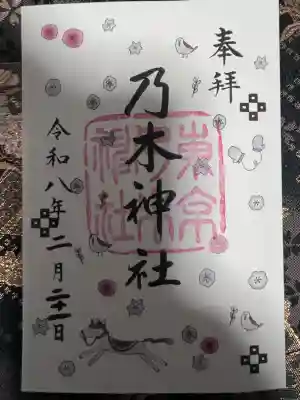 奉拝
乃木神社
東京
神社
令和八年二月二十一日